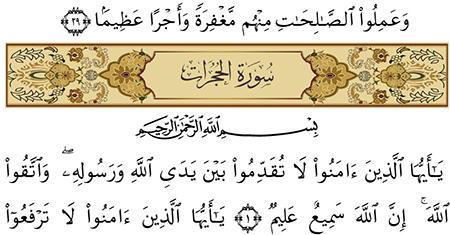 وَعَمِلُوا۟ ٱلصَّـٰلِحَـٰتِ مِنْهُم مَّغْفِرَةً وَأَجْرًا عَظِيمًۢا ﴿٢٩﴾
سُورَةُ الحُجُرَاتِ
بِسْمِ ٱللَّهِ ٱلرَّحْمَـٰنِ ٱلرَّحِيمِ
يَـٰٓأَيُّهَا ٱلَّذِينَ ءَامَنُوا۟ لَا تُقَدِّمُوا۟ بَيْنَ يَدَىِ ٱللَّهِ وَرَسُولِهِۦ ۖ وَٱتَّقُوا۟
ٱللَّهَ ۚ إِنَّ ٱللَّهَ سَمِيعٌ عَلِيمٌ ﴿١﴾ يَـٰٓأَيُّهَا ٱلَّذِينَ ءَامَنُوا۟ لَا تَرْفَعُوٓا۟